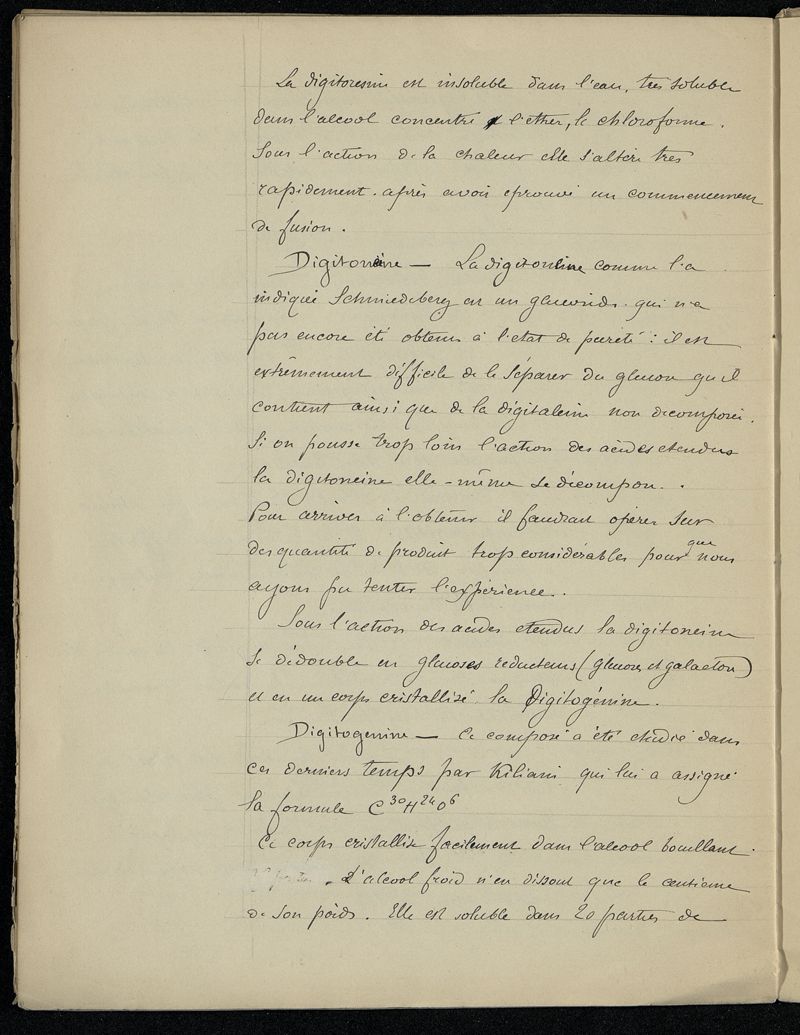 La digitoresine est insoluble dans l'eau, très soluble
dans l'alcool concentré et l'ether, le chloroforme.
Sous l'action de la chaleur elle s'altère très
rapidement. après avoir eprouvé un commencement
de fusion.
Digitoneine — La digitoneine comme l'a
indiqué Schmiedeberg est un glucoside. qui n'a
pas encore été obtenu à l'état de pureté : il est
extrêmement difficile de le séparer du glucose qu'il
contient ainsi que de la digitaleine non decomposée.
Si on pousse trop loin l'action des acides etendus
la digitoneine elle-même se décompose.
Pour arriver à l'obtenir il faudrait opérer sur
des quantité de produit trop considérables pour que nous
ayons pu tenter l'expérience.
Sous l'action des acides etendus la digitoneine
se dédouble en glucoses reducteurs (glucose et galactose)
et en un corps cristallisé. la Digitogénine.
Digitogenine — Ce composé a été etudié dans
ces derniers temps par Kiliani qui lui a assigné
la formule C³⁰H²⁴O⁶
Ce corps cristallise facilement dans l'alcool bouillant.
L'alcool froid n'en dissout que le centieme
de son poids. Elle est soluble dans 20 parties de